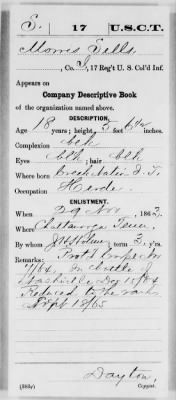 S. 17 U.S.C.T.
Morris Sells
, Co. I, 17 Reg't U. S. Col'd Inf.
Appears on
Company Descriptive Book
of the organization named above.
DESCRIPTION.
Age 18 years; height, 5 feet 6 1/2 in
Complexion Blk
Eyes Blk ; hair Blk
Where born
Occupation
ENLISTMENT.
When 29 Nov , 1863.
Where Chattanooga Tenn
By whom ; term 3, y'rs.
Remarks: Corpl
in battle of
Nashville Dec 15/64
Reduced to the ranks
Sept 18/65
Dayton,
(383g) Copyist.